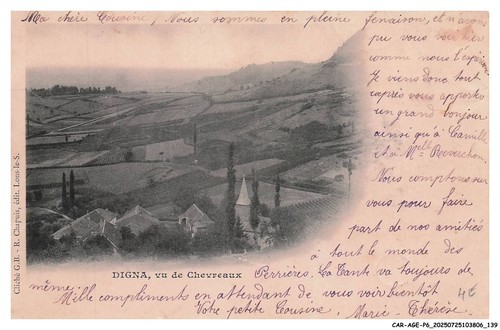 Ma chère Cousine, Nous sommes en pleine fenaison, et n'avons
pu vous voir hier
comme nous l'espérions
Je viens donc tout
après vous apporter
un grand bonjour
ainsi qu'à Camille
et à Mlle
Nous comptons sur
vous pour faire
part de nos amitiés
à tout le monde des
Perrières. La Tante va toujours de
même,
Mille compliments en attendant de vous voir bientôt
Votre petite Cousine, Marie-Thérèse
DIGNA, vu de Chevreaux
Cliché G.B. - R. Chapuis, édit. Lons-le-S.
CAR-AGE-P6_20250725103806_139